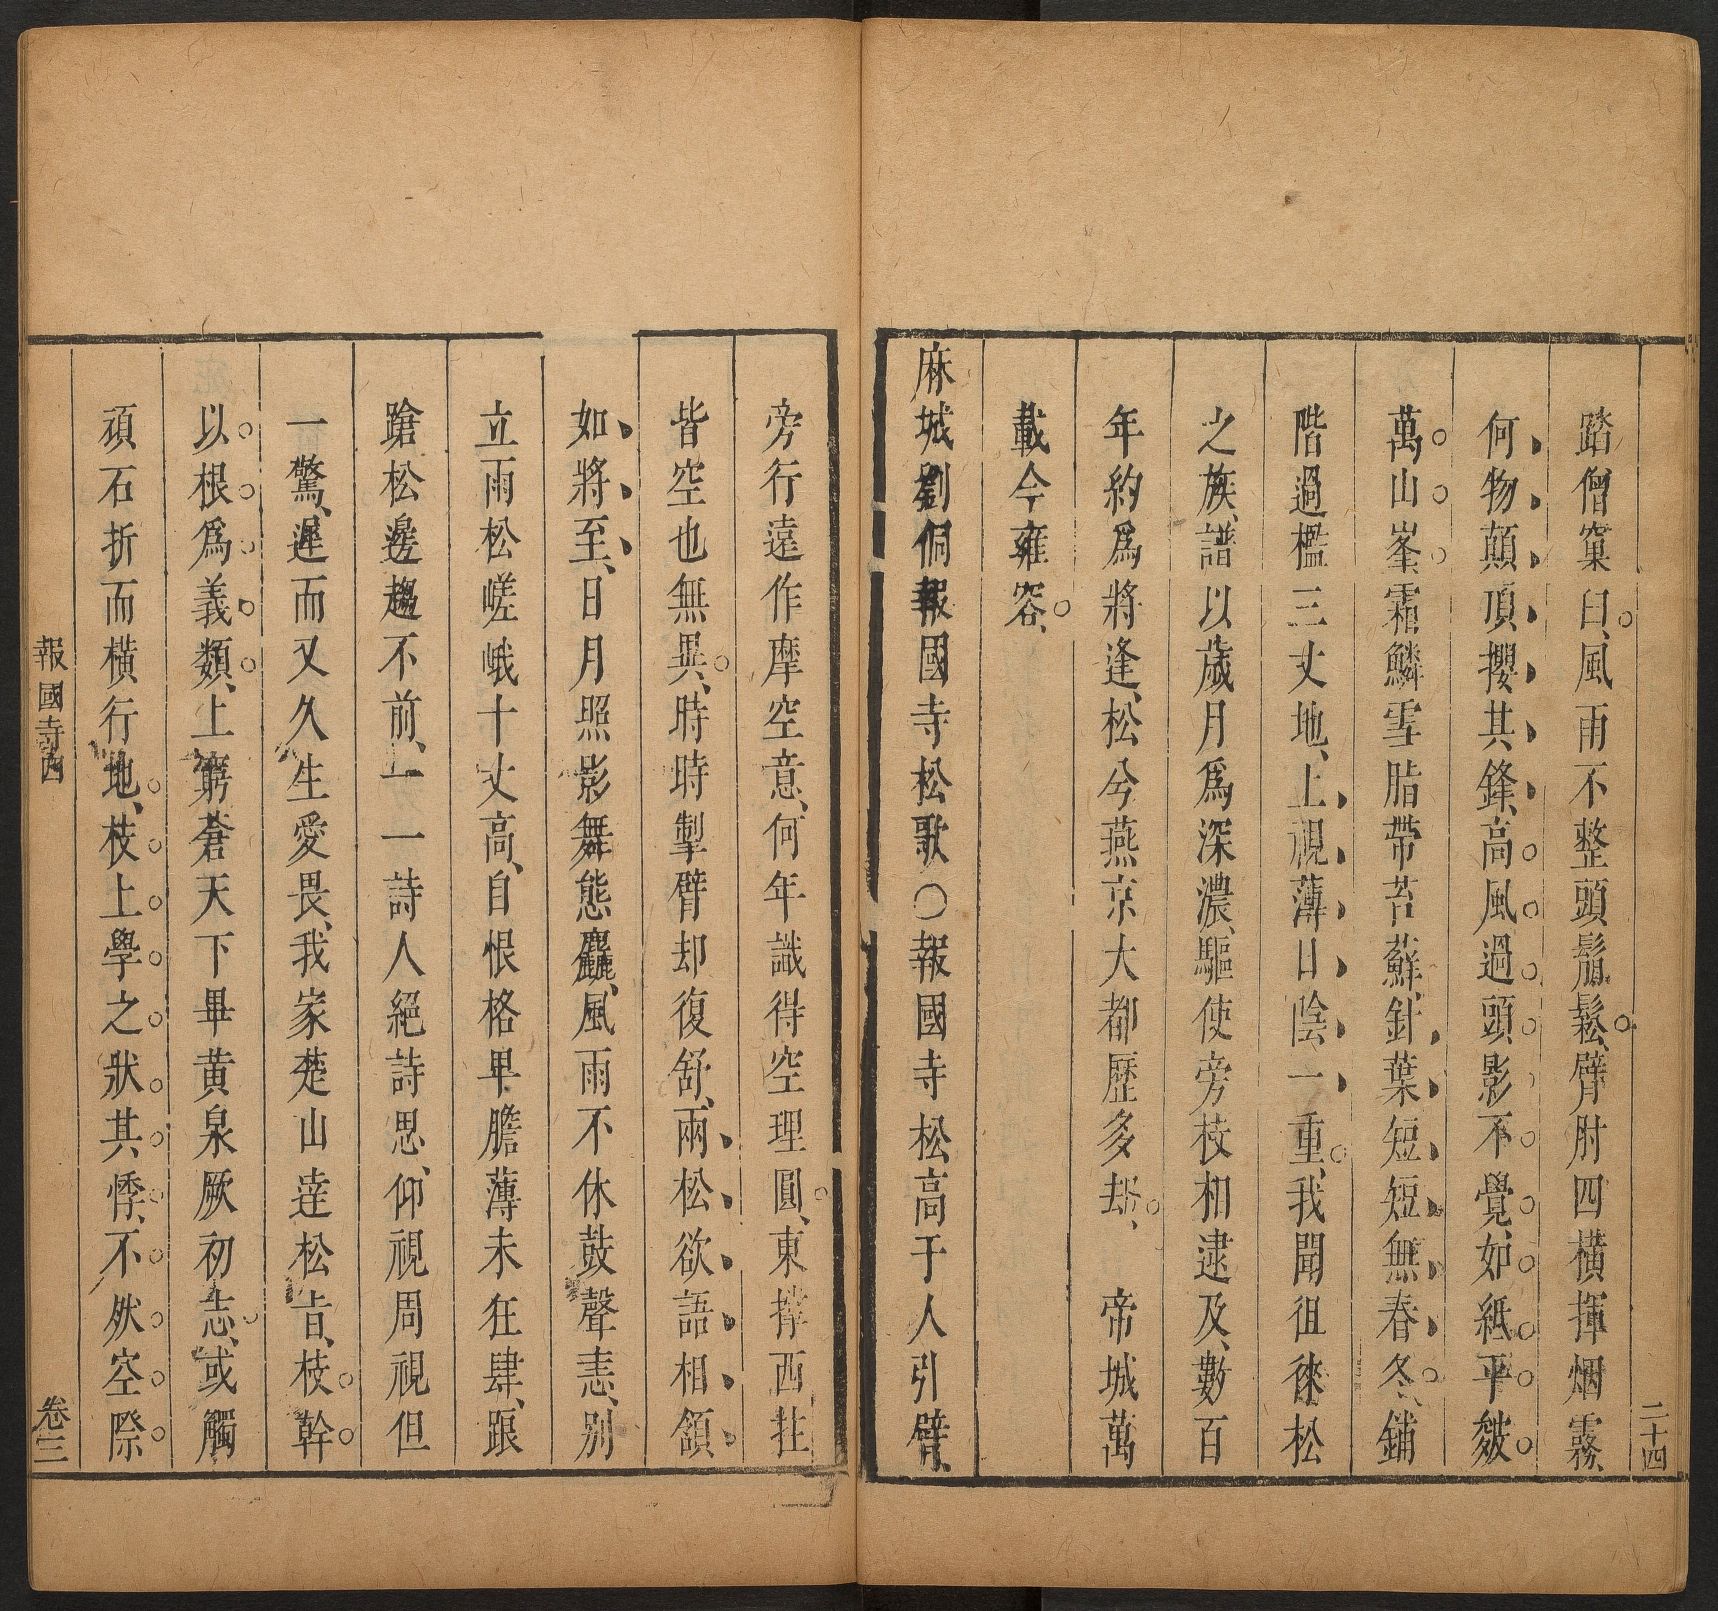 二十四
踏僧窠臼風雨不整頭鬅鬆臂肘四橫揮烟霧
何物顛頂攖其鋒高風過頭影不覺如紙平皴
萬山峯霜鱗雪脂帶苔蘚針葉短短無春冬鋪
階過檻三丈地上視薄日陰一重我聞徂徠松
之族譜以歲月爲深濃驅使旁枝相逮及數百
年約爲將逢松兮燕京大都歷多却 帝城萬
載今雍容
麻城劉侗報國寺松歌○報國寺松高于人引臂
旁行遠作摩空意何年識得空理圓東撐西拄
皆空也無異時時掣臂却復舒兩松欲語相頷
如將至日月照影舞態麤風雨不休鼓聲恚別
立雨松嵯峨十丈高自恨格卑膽薄未狂肆踉
蹌松邊趨不前一一詩人絕詩思仰視周視但
一驚遲而又久生愛畏我家楚山達松旨枝幹
以根爲義類上窮蒼天下畢黃泉厥初志或觸
頑石折而橫行地枝上學之狀其悸不然空際
報國寺四
卷三